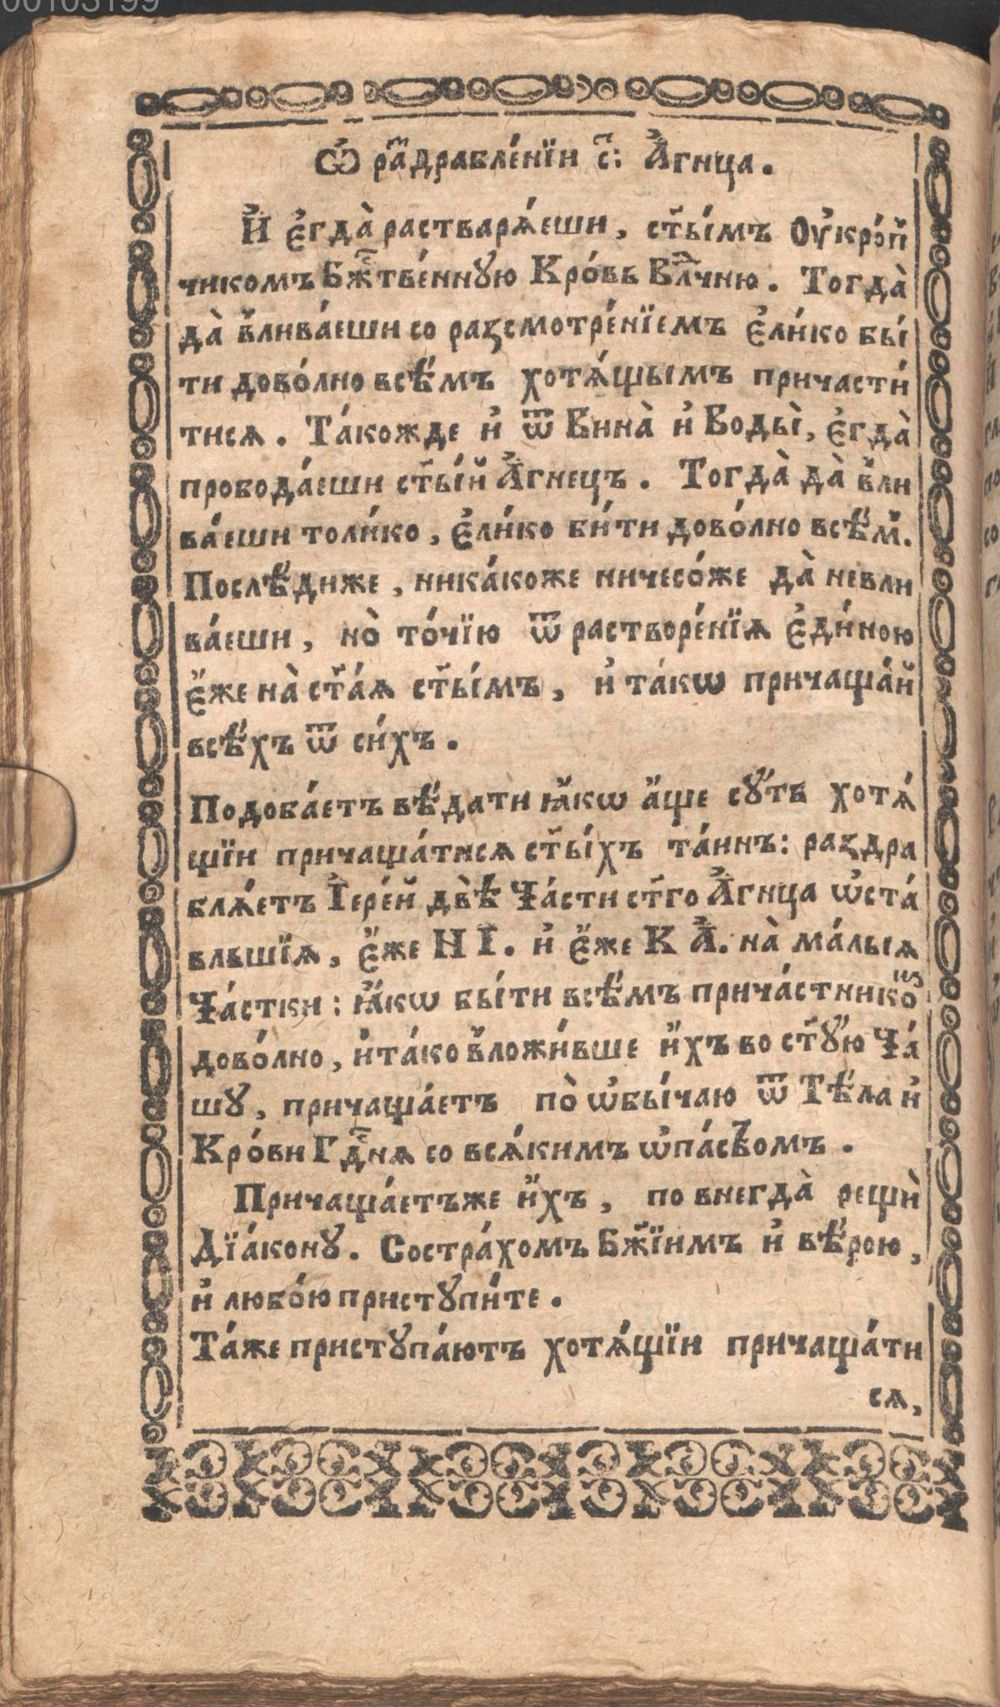 00103199
Ѽ раⷥ҇драбле́нїи с҃: А҆́гнца.
И҆ є҆гда̀ растварѧ́еши, ст҃ы́мъ Оу҆кро́пй
чикомъ Бжⷭ҇тве́нную Кро́вь Влⷣчню. Тогда̀
да̀ влива́еши со раꙁсмотре́нїемъ є҆ли́ко бы́
ти дово́лно всѣ̑мъ хотѧ́щымъ причасти́
тисѧ. Та́кожде и҆ ѿ Вина̀ и҆ Воды̀, є҆гда̀
прободае́ши ст҃ы́й А҆́гнецъ. Тогда̀ да̀ вли
ва́еши толи́ко, є҆ли́ко би́ти дово́лно всѣ̑м̾.
Послѣ́диже, ника́коже ничесо́же да̀ невли
ва́еши, но̀ то́чїю ѿ растворе́нїѧ є҆ди́ною
є҆́же на̀ ст҃а́ѧ ст҃ы́мъ, и҆ та́кѡ причаща́й
всѣ́хъ ѿ си́хъ.
Подоба́етъ вѣ́дати ꙗ҆́кѡ а҆́ще су́ть хотѧ́
щїи причаща́тисѧ ст҃ы́хъ та́инъ: раꙁдра
блѧ́етъ І҆ере́й двѣ̀ Ча́сти ст҃го А҆́гнца ѡ҆ста́
вльшїѧ, є҆́же Н І. и҆ є҆́же К А. на̀ ма́лыѧ
Ча́стки: ꙗ҆́кѡ бы́ти всѣ̑мъ прича́стникоⷨ҇
дово́лно, и҆та́ко вложи́вше и҆́хъ во ст҃у́ю Ча́
шу, причаща́етъ по̀ ѡ҆бы́чаю ѿ Тѣ́ла и҆
Кро́ви Гдⷭ҇нѧ со всѧ́кимъ ѡ҆па́ствомъ.
Причаща́етъже и҆́хъ, по внегда̀ рещѝ
Дїа́кону. Состра́хомъ Бж҃їимъ и҆ вѣ́рою,
и҆ любо́ю приступи́те.
Та́же приступа́ютъ хотѧ́щїи причаща́ти
сѧ,